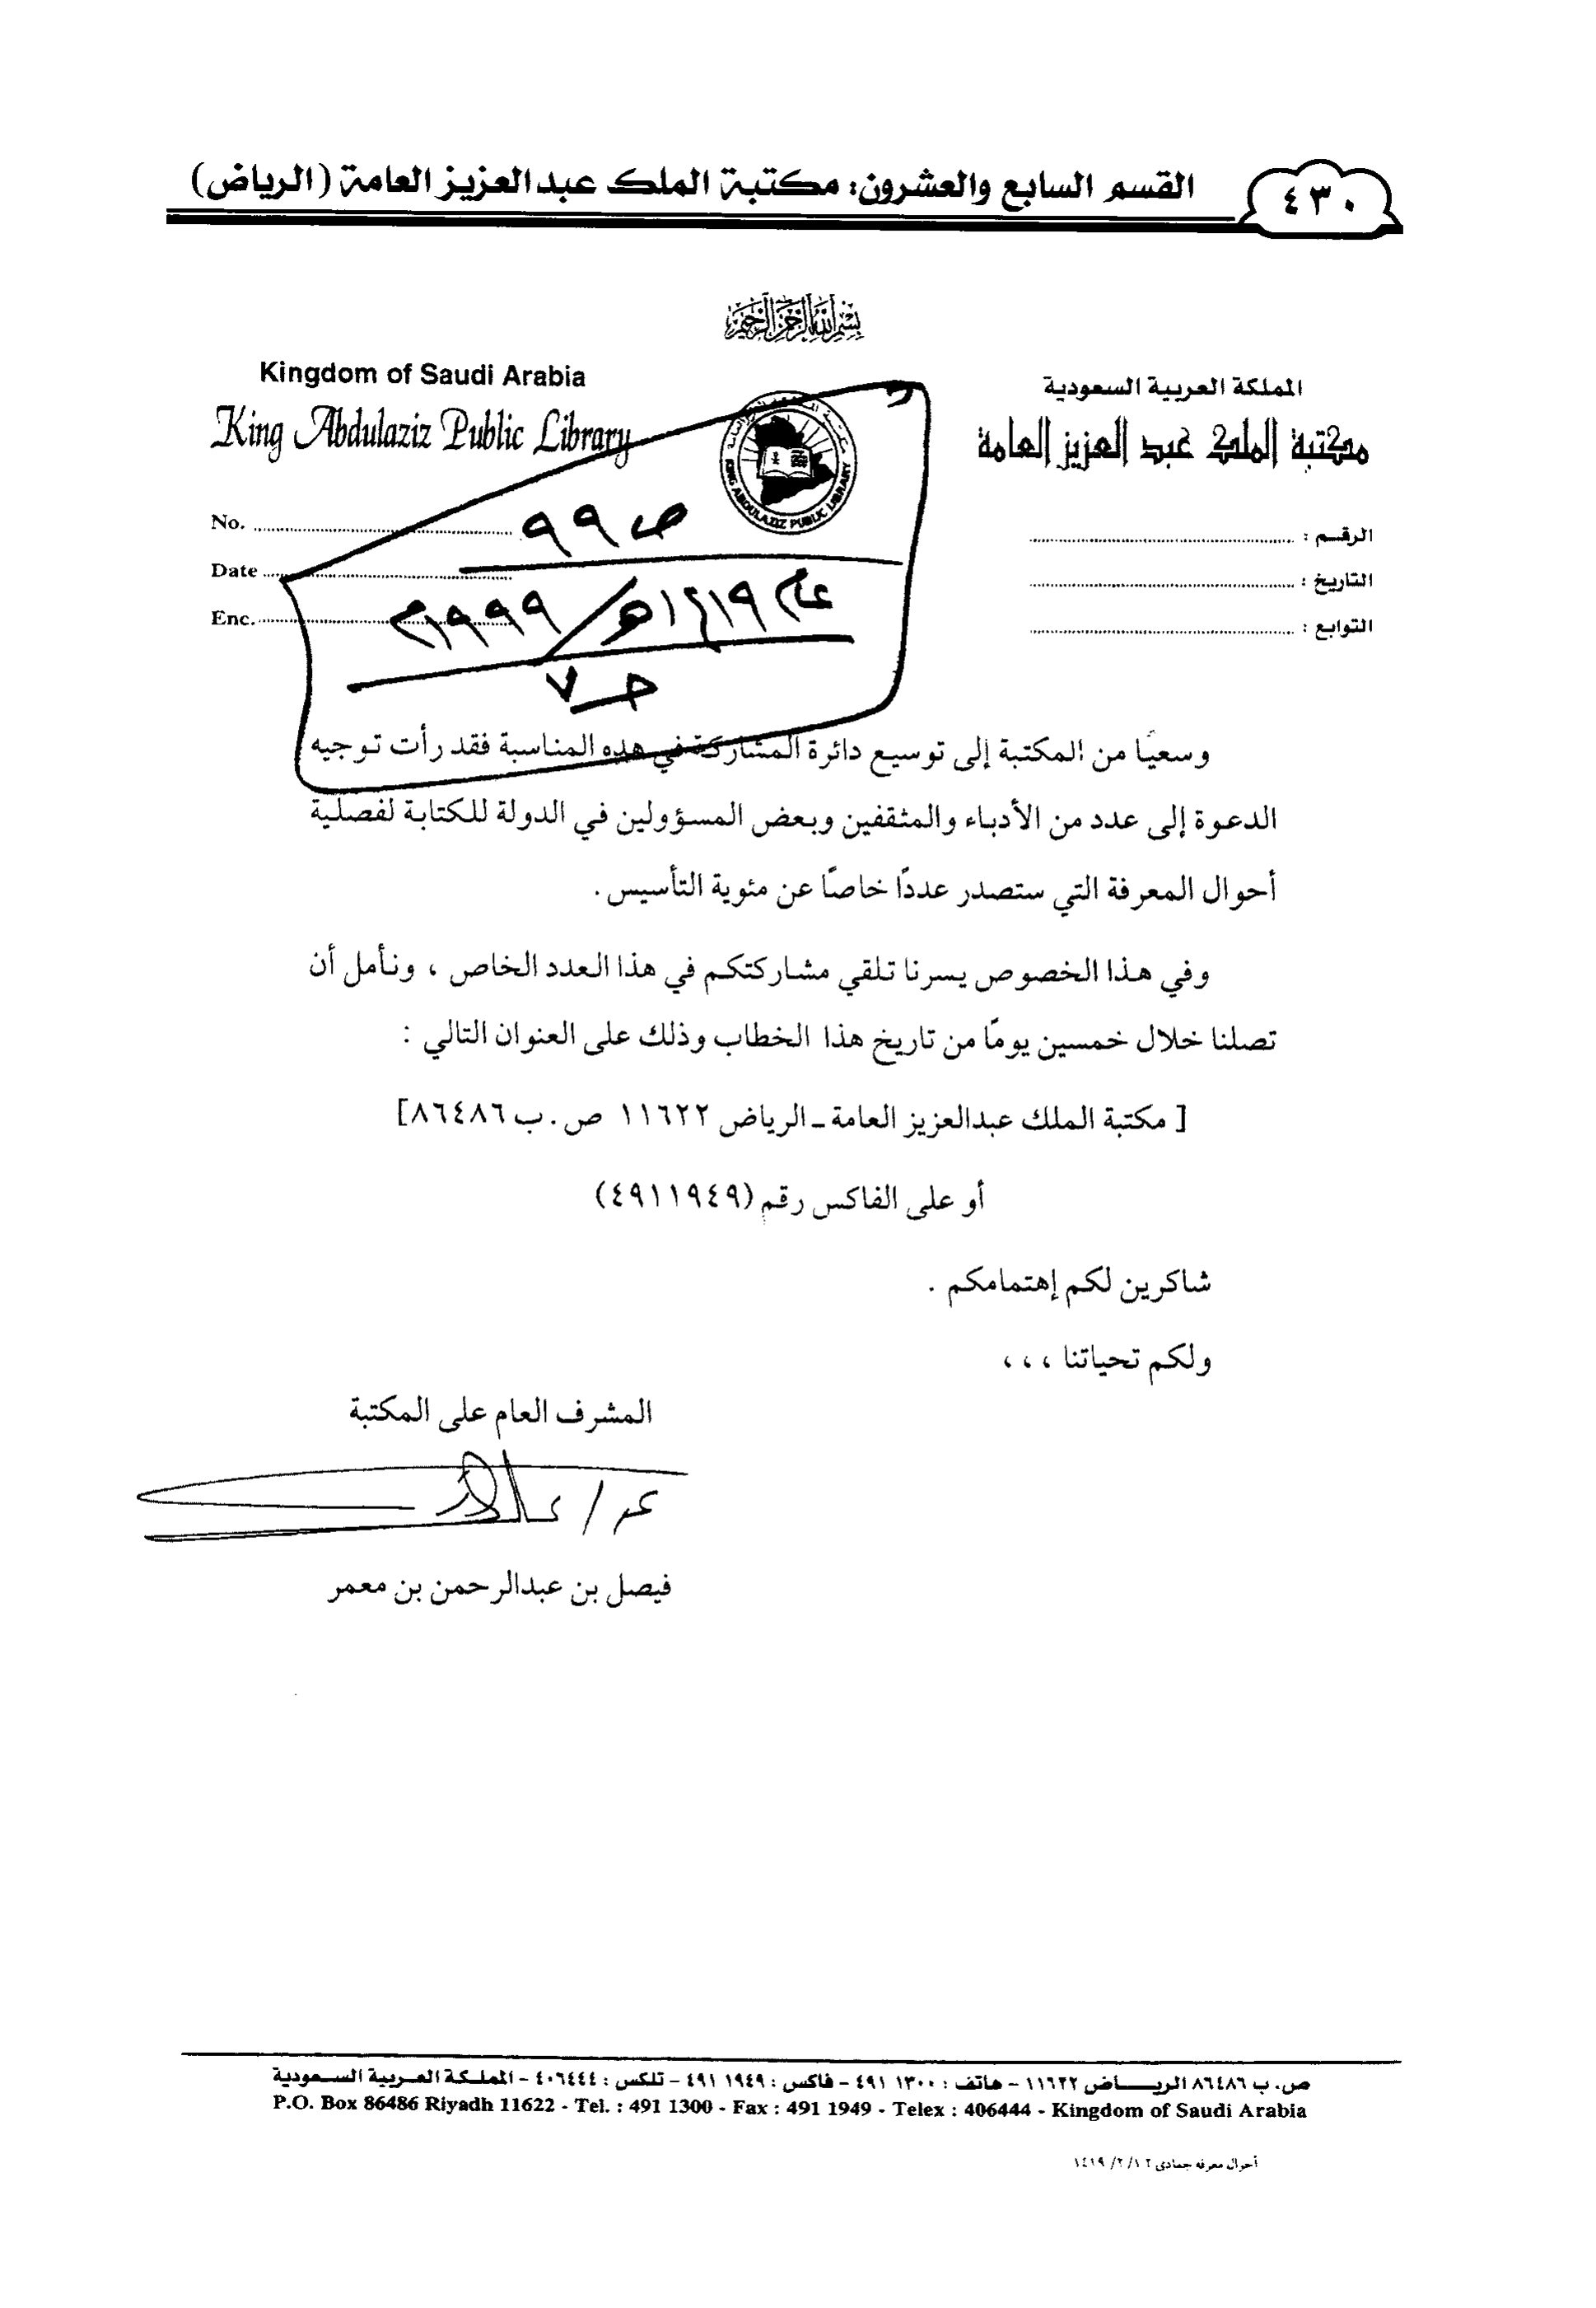 ٤٣٠
القسم السابع والعشرون: مكتبة الملك عبدالعزيز العامة (الرياض)
بسم الله الرحمن الرحيم
Kingdom of Saudi Arabia
King Abdulaziz Public Library
المملكة العربية السعودية
مكتبة الملك عبد العزيز العامة
KING ABDULAZIZ PUBLIC LIBRARY
No. ....................
Date ....................
Enc. ....................
الرقم : ....................
التاريخ : ....................
التوابع : ....................
ص ٩٩
عام ١٤١٩هـ/١٩٩٩م
حـ٧
وسعيًا من المكتبة إلى توسيع دائرة المشاركة في هذه المناسبة فقد رأت توجيه
الدعوة إلى عدد من الأدباء والمثقفين وبعض المسؤولين في الدولة للكتابة لفصلية
أحوال المعرفة التي ستصدر عددًا خاصًا عن مئوية التأسيس .
وفي هذا الخصوص يسرنا تلقي مشاركتكم في هذا العدد الخاص ، ونأمل أن
تصلنا خلال خمسين يومًا من تاريخ هذا الخطاب وذلك على العنوان التالي :
[ مكتبة الملك عبدالعزيز العامة ـ الرياض ١١٦٢٢ ص.ب ٨٦٤٨٦]
أو على الفاكس رقم (٤٩١١٩٤٩)
شاكرين لكم إهتمامكم .
ولكم تحياتنا ،،،
المشرف العام على المكتبة
فيصل بن عبدالرحمن بن معمر
ص.ب ٨٦٤٨٦ الريـــاض ١١٦٢٢ - هاتف : ١٣٠٠ ٤٩١ - فاكس : ١٩٤٩ ٤٩١ - تلكس : ٤٠٦٤٤٤ - المملكة العربية السعودية
P.O. Box 86486 Riyadh 11622 - Tel. : 491 1300 - Fax : 491 1949 - Telex : 406444 - Kingdom of Saudi Arabia
أحوال معرفه جمادى ١٤١٩/٢/١٢